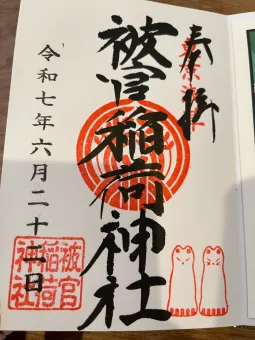 奉拝
被官稲荷神社
令和七年六月二十一日
被官
稲荷
神社